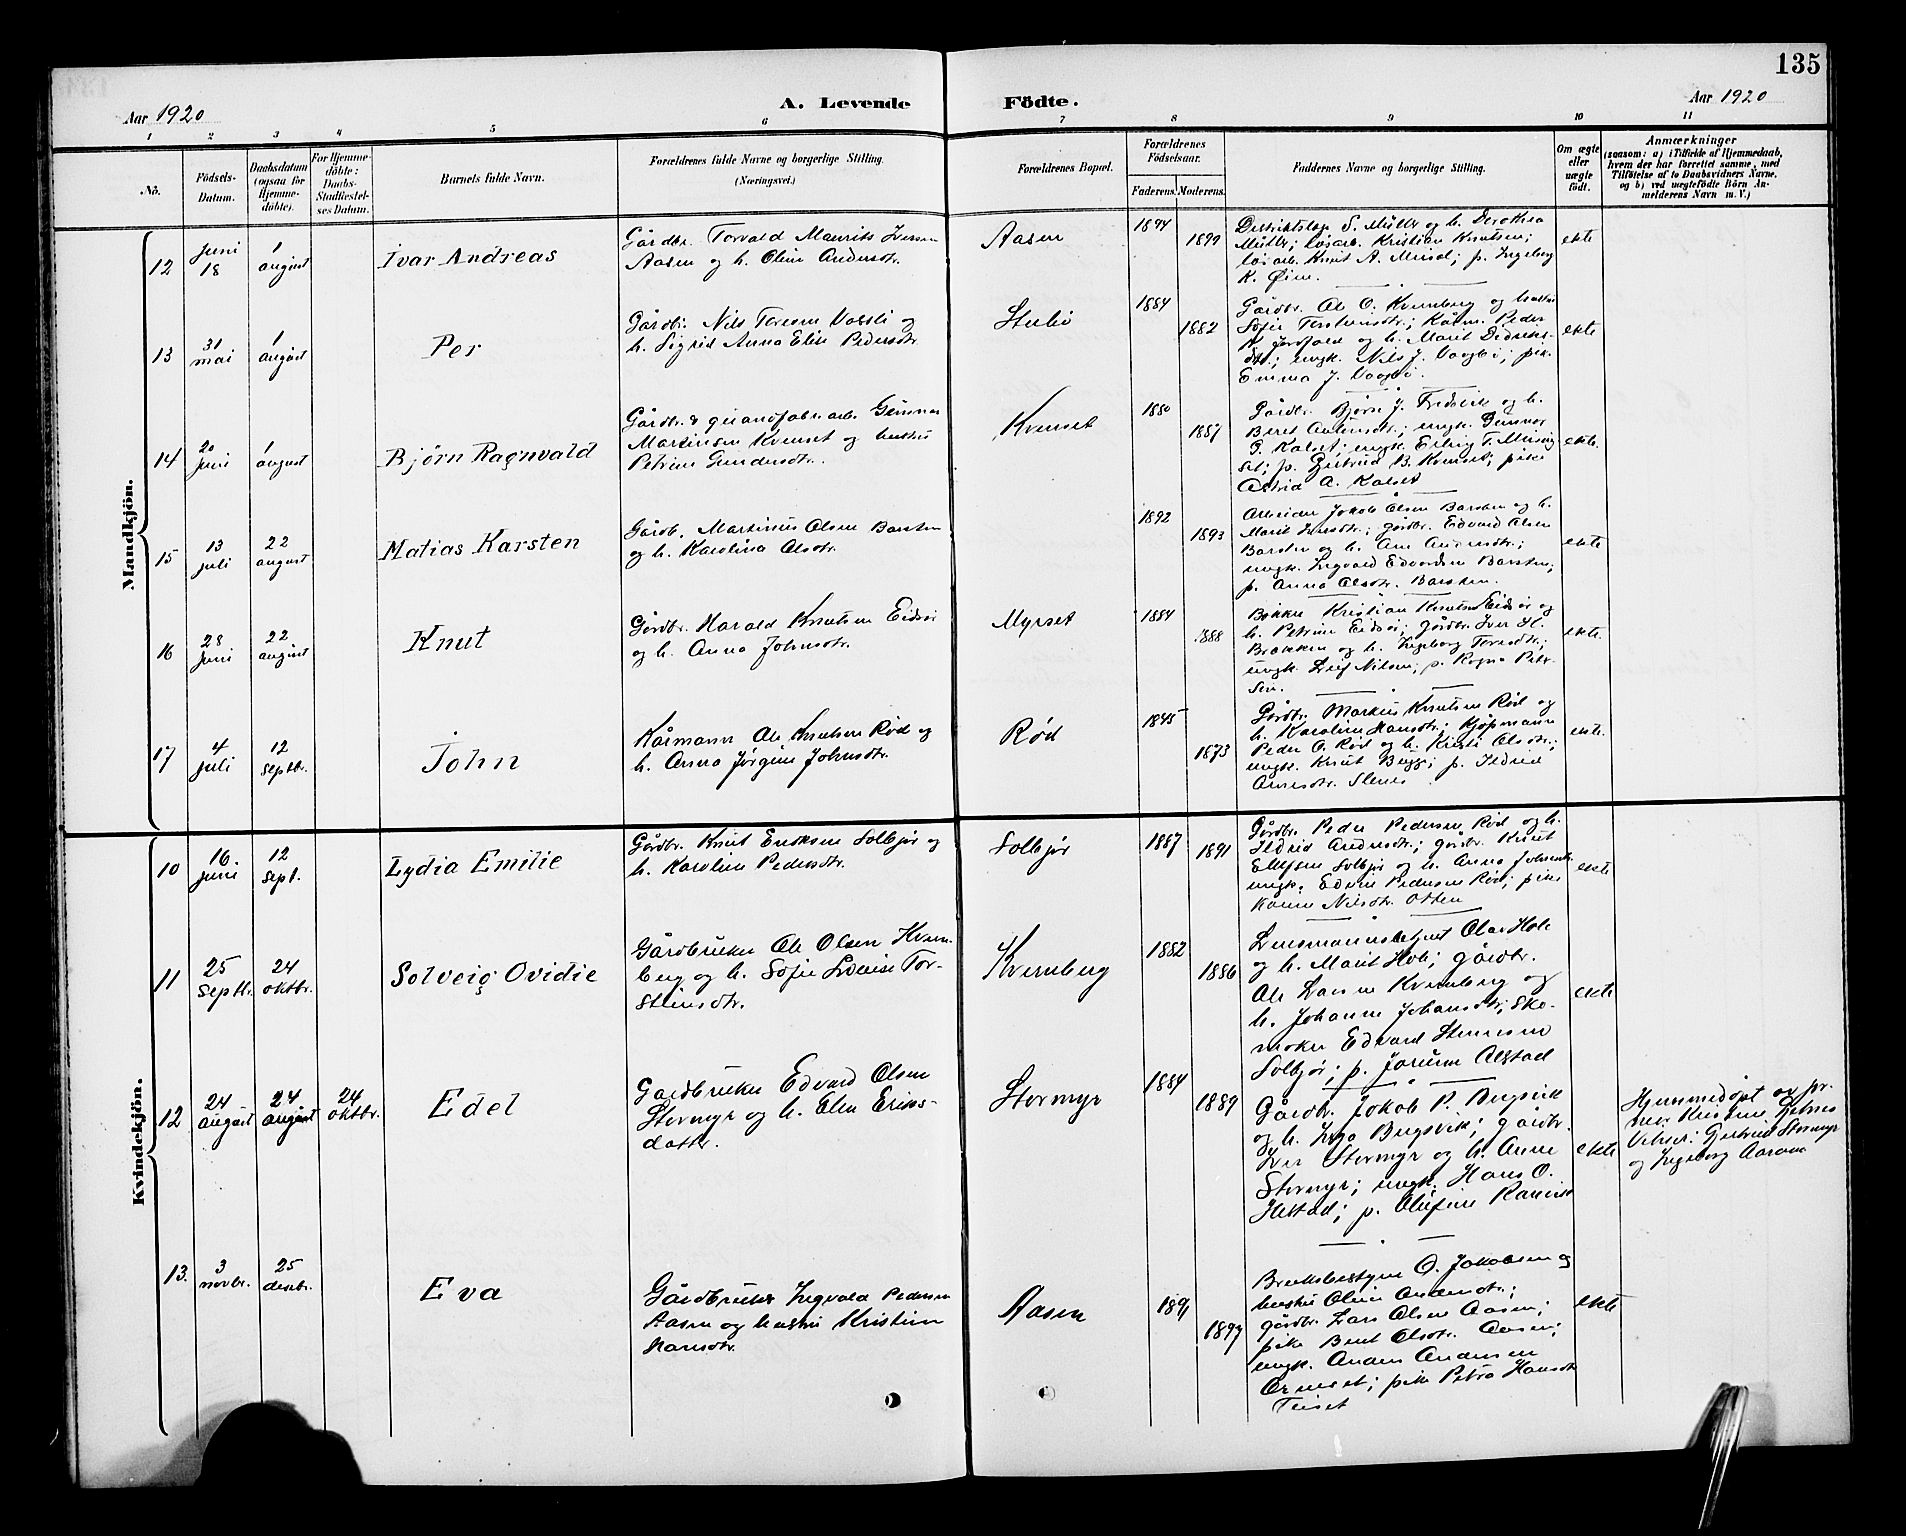 135
Aar 1920
A. Levende Födte.
Aar 1920
1 2 3 4 5 6 7 8 9 10 11
No.
Födsels-
Datum.
Daabsdatum
(ogsaa for
Hjemme-
döbte).
For Hjemme-
döbte:
Daabs-
Stadfæstel-
ses Datum.
Barnets fulde Navn.
Forældrenes fulde Navne og borgerlige Stilling.
(Næringsvei.)
Forældrenes Bopæl.
Forældrenes
Födselsaar.
Faderens. Moderens.
Faddernes Navne og borgerlige Stilling.
Om ægte
eller
uægte
födt.
Anmærkninger
(saasom: a) i Tilfælde af Hjemmedaab,
hvem der har forrettet samme, med
Tilföielse af to Daabsvidners Navne,
og b) ved uegtefödte Börn An-
melderens Navn m. V.)
Mandkjön.
12
juni
18
1
august
Ivar Andreas
Gårdbr. Torvald Maurits Iversen
Aasen og h. Oline Andersdtr.
Aasen
1894
1899
Distriktslege S. Müller og h. Dorothea
Müller; løsarb. Kristian Knutsen;
løsarb. Knut A. ; p. Ingeborg
K. Øien.
ekte
13
31
mai
1
august
Per
Gårdbr. Nils Toresen Vaagbø og
h. Sigrid Anna Elise Pedersdtr.
Stubø
1884
1882
Gårdbr. Ole O. Kvernberg og hustru
Sofie Torsteinsdtr.; Kårm. Peder
og h. Marit Didriks-
dtr.; ungk. Nils J. Vaagbø; pike
Emma J. Vaagbø.
ekte
14
20
juni
1
august
Bjørn Ragnvald
Gårdbr. & guanofabr.arb. Gunnar
Martinsen Kvenset og hustru
Petrine Gundersdtr.
Kvenset
1880
1887
Gårdbr. Bjørn J. Fredsvik og h.
Beret Antonsdtr.; ungk. Gunnar
G. Kalset; ungk. Erling T.
set; p. Gjertrud B. Kvenset; pike
Astrid A. Kalset
ekte.
15
13
juli
22
august
Matias Karsten
Gårdb. Martinus Olsen Barsten
og h. Karolina Olsdtr.
1892
1893
Arbeider Jakob Olsen Barsten og h.
Marit Larsdtr.; gårdbr. Edvard Olsen
Barsten og h. Ane Andersdtr.;
ungk. Ingvald Edvardsen Barsten;
p. Anna Olsdtr. Barsten.
ekte
16
28
juni
22
august
Knut
Gårdbr. Harald Knutsen Eidsøi
og h. Anna Johnsdtr.
Myrset
1884
1888
Bøkker Kristian Knutsen Eidsøi og
h. Petrine Eidsøi; gårdbr. Iver H.
Brakken og h. Ingeborg Toresdtr.;
ungk. Leif Nilsen; p. Ragna Peter-
sen.
ekte.
17
4
juli
12
septbr.
John
Kårmann Ole Knutsen Rød og
h. Anna Jørgine Johnsdtr.
Rød
1845
1873
Gårdbr. Markus Knutsen Rød og
h. Karoline Hansdtr.; Kjøpmann
Peder O. Rød og h. Kristi Olsdtr.;
ungk. Knut Bugge; p. Ildrid
Arnesdtr. Stenes.
ekte.
Kvindekjön.
10
16.
juni
12
sept.
Lydia Emilie
Gårdbr. Knut Ellefsen Solbjør og
h. Karoline Pedersdtr.
Solbjør
1887
1891
Gårdbr. Peder Pedersen Rød og h.
Ildrid Andersdtr.; gårdbr. Knut
Ellefsen Solbjør og h. Anna Johnsdtr.
ungk. Edvin Pedersen Rød; pike
Karen Nilsdtr. Otten
ekte
11
25
septbr.
24
oktbr.
Solveig Ovidie
Gårdbruker Ole Olsen Kvern-
berg og h. Sofie Lovise Tor-
steinsdtr.
Kvernberg
1882
1886
Lensmannsbetjent Olav Hole
og h. Marit Hole; gårdbr.
Ole Larsen Kvernberg og
h. Johanne Johansdtr.; Sko-
maker Edvard Stenersen
Solbjør; p. Jorunn Alstad
ekte
12
24
august
24
august
24
oktbr.
Edel
Gårdbruker Edvard Olsen
Stormyr og h. Elen Eriks-
datter.
Stormyr
1884
1889
Gårdbr. Jokob P. Bergsvik
og h. Inga Bergsvik; gårdbr.
Iver Stormyr og h. Anne
Stormyr; ungk. Hans O.
Ilestad; p. Olufine Ranvik
ekte
Hjemmedøpt av jor-
mor Kristine Gjelnes
Vitner: Gjertrud Stormyr
og Ingeborg Aaram
13.
3
novbr.
25
desbr.
Eva
Gårdbruker Ingvald Pedersen
Aasen og hustru Kristine
Hansdtr.
Aasen
1891
1897
Bruksbestyrer O. Jakobsen og
hustru Oline Andersdtr.;
gårdbr. Lars Olsen Aasen;
pike Berit Olsdtr. Aasen;
ungk. Anders Andersen
Orneset; pike Petra Hansdtr.
Teiset
ekte